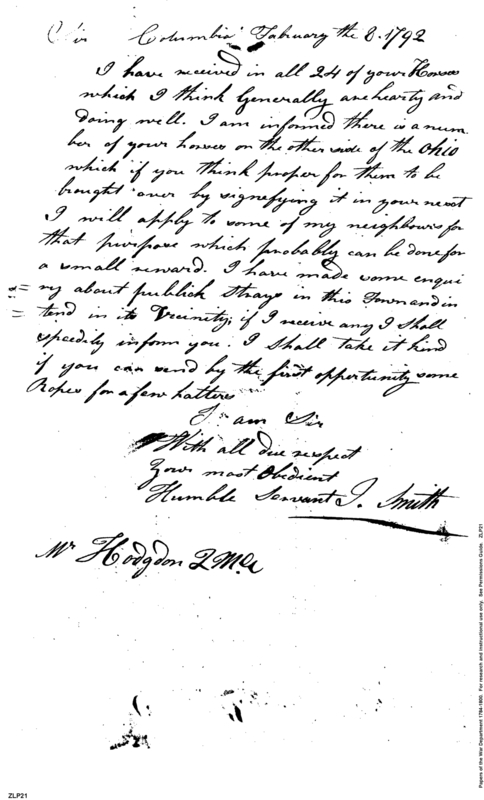 Sir Columbia February the 8. 1792
I have received in all 24 of your Horses
which I think Generally are hearty and
doing well. I am informed there is a num
ber of your horses on the other side of the Ohio
which if you think proper for them to be
brought over by signefying it in your next
I will apply to some of my neighbours for
that purpose which probably can be done for
a small reward. I have made some enqui
ry about publick strays in this Town and in
tend in its Vicinity; if I receive any I shall
speedily inform you. I shall take it kind
if you can send by the first opportunity some
Ropes for a few halters
I am Sir
With all due respect
Your most Obedient
Humble Servant J. Smith
Mr Hodgdon 2 Mr
Papers of the War Department 1784-1800. For research and instructional use only. See Permissions Guide. ZLP21
ZLP21